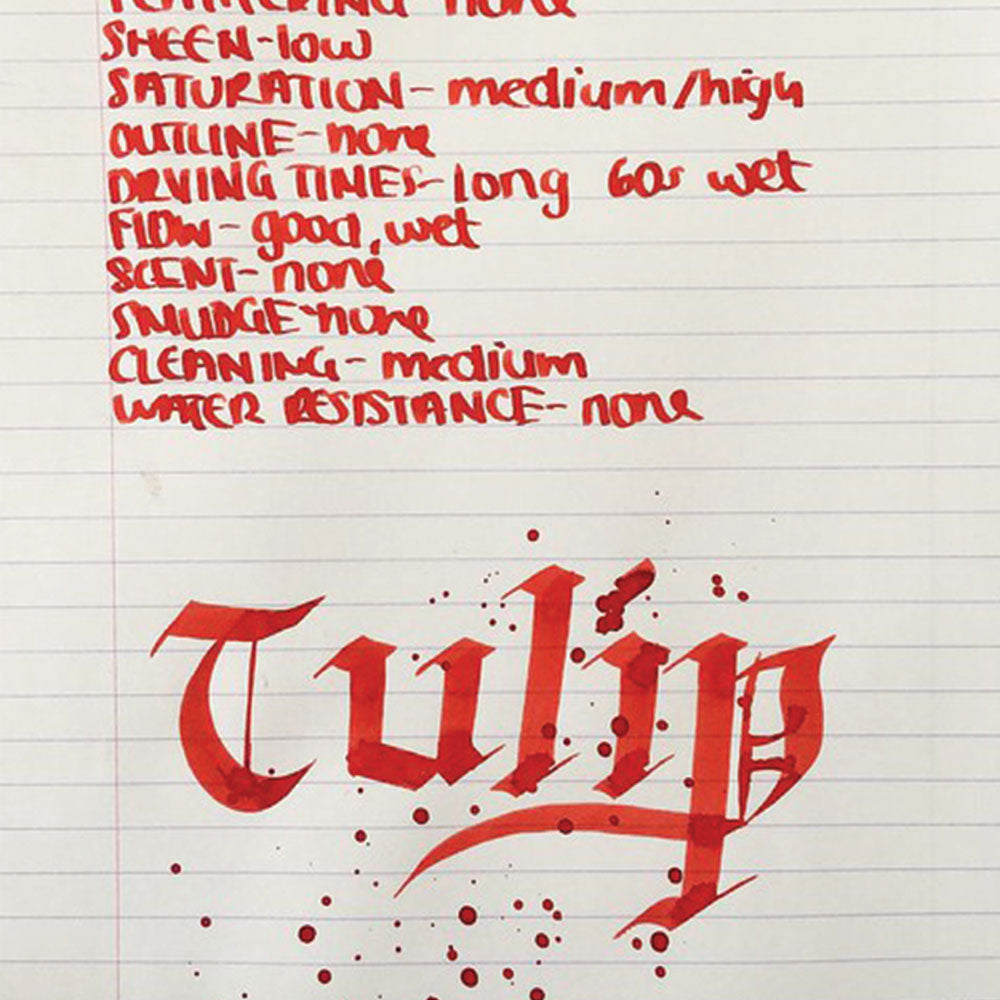 FEATHERING-none
SHEEN-low
SATURATION-medium/high
OUTLINE-none
DRYING TIMES-long 60s wet
FLOW-good, wet
SCENT-none
SMUDGE-none
CLEANING-medium
WATER RESISTANCE-none
Tulip